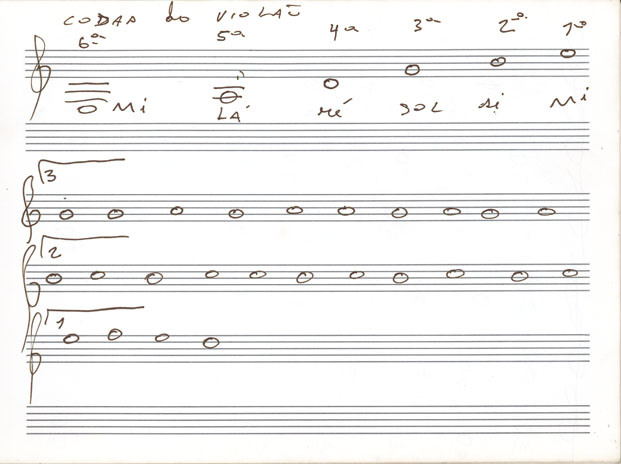 CORDAS do VIOLÃO
6ª 5ª 4ª 3ª 2ª 1ª
Mi LÁ Ré SOL Si Mi
3
2
1